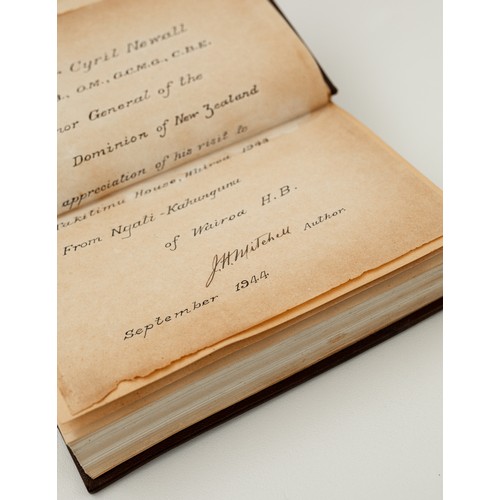 Cyril Newall
O.M., G.C.M.G., C.B.E.
General of the
Dominion of New Zealand
appreciation of his visit to
Takitimu House, Wairoa 1944
From Ngati-Kahungunu
of Wairoa H.B.
J.H. Mitchell Author
September 1944